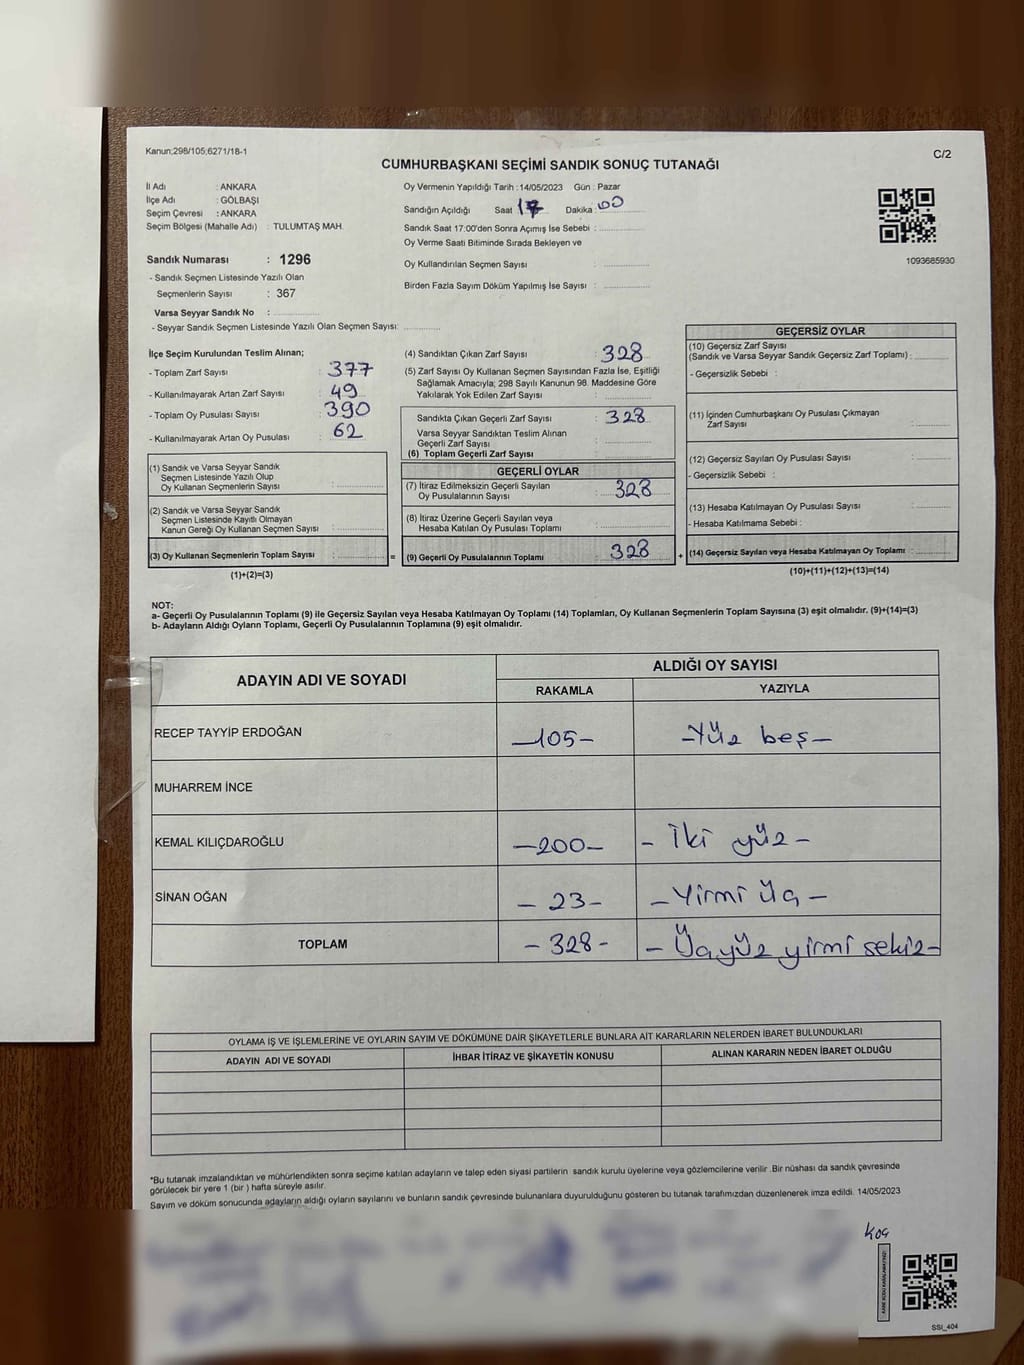 Kanun;298/105;6271/18-1
CUMHURBAŞKANI SEÇİMİ SANDIK SONUÇ TUTANAĞI
C/2
İl Adı : ANKARA
İlçe Adı : GÖLBAŞI
Seçim Çevresi : ANKARA
Seçim Bölgesi (Mahalle Adı) : TULUMTAŞ MAH.
Sandık Numarası : 1296
- Sandık Seçmen Listesinde Yazılı Olan
Seçmenlerin Sayısı : 367
Varsa Seyyar Sandık No :
- Seyyar Sandık Seçmen Listesinde Yazılı Olan Seçmen Sayısı:
Oy Vermenin Yapıldığı Tarih : 14/05/2023 Gün : Pazar
Sandığın Açıldığı Saat 17 Dakika : 00
Sandık Saat 17:00'den Sonra Açımış İse Sebebi :
Oy Verme Saati Bitiminde Sırada Bekleyen ve
Oy Kullandırılan Seçmen Sayısı :
Birden Fazla Sayım Döküm Yapılmış İse Sayısı :
1093685930
İlçe Seçim Kurulundan Teslim Alınan;
- Toplam Zarf Sayısı : 377
- Kullanılmayarak Artan Zarf Sayısı : 49
- Toplam Oy Pusulası Sayısı : 390
- Kullanılmayarak Artan Oy Pusulası : 62
(1) Sandık ve Varsa Seyyar Sandık
Seçmen Listesinde Yazılı Olup
Oy Kullanan Seçmenlerin Sayısı :
(2) Sandık ve Varsa Seyyar Sandık
Seçmen Listesinde Kayıtlı Olmayan
Kanun Gereği Oy Kullanan Seçmen Sayısı :
(3) Oy Kullanan Seçmenlerin Toplam Sayısı : =
(1)+(2)=(3)
(4) Sandıktan Çıkan Zarf Sayısı : 328
(5) Zarf Sayısı Oy Kullanan Seçmen Sayısından Fazla İse, Eşitliği
Sağlamak Amacıyla; 298 Sayılı Kanunun 98. Maddesine Göre
Yakılarak Yok Edilen Zarf Sayısı :
Sandıkta Çıkan Geçerli Zarf Sayısı : 328
Varsa Seyyar Sandıktan Teslim Alınan
Geçerli Zarf Sayısı :
(6) Toplam Geçerli Zarf Sayısı :
GEÇERLİ OYLAR
(7) İtiraz Edilmeksizin Geçerli Sayılan
Oy Pusulalarının Sayısı : 328
(8) İtiraz Üzerine Geçerli Sayılan veya
Hesaba Katılan Oy Pusulası Toplamı :
(9) Geçerli Oy Pusulalarının Toplamı : 328 +
GEÇERSİZ OYLAR
(10) Geçersiz Zarf Sayısı
(Sandık ve Varsa Seyyar Sandık Geçersiz Zarf Toplamı) :
- Geçersizlik Sebebi :
(11) İçinden Cumhurbaşkanı Oy Pusulası Çıkmayan
Zarf Sayısı :
(12) Geçersiz Sayılan Oy Pusulası Sayısı :
- Geçersizlik Sebebi :
(13) Hesaba Katılmayan Oy Pusulası Sayısı :
- Hesaba Katılmama Sebebi :
(14) Geçersiz Sayılan veya Hesaba Katılmayan Oy Toplamı :
(10)+(11)+(12)+(13)=(14)
NOT:
a- Geçerli Oy Pusulalarının Toplamı (9) ile Geçersiz Sayılan veya Hesaba Katılmayan Oy Toplamı (14) Toplamları, Oy Kullanan Seçmenlerin Toplam Sayısına (3) eşit olmalıdır. (9)+(14)=(3)
b- Adayların Aldığı Oyların Toplamı, Geçerli Oy Pusulalarının Toplamına (9) eşit olmalıdır.
ADAYIN ADI VE SOYADI
ALDIĞI OY SAYISI
RAKAMLA YAZIYLA
RECEP TAYYİP ERDOĞAN -105- -Yüz beş-
MUHARREM İNCE
KEMAL KILIÇDAROĞLU -200- - İki yüz -
SİNAN OĞAN - 23 - - Yirmi üç -
TOPLAM - 328 - - Üçyüz yirmi sekiz -
OYLAMA İŞ VE İŞLEMLERİNE VE OYLARIN SAYIM VE DÖKÜMÜNE DAİR ŞİKAYETLERLE BUNLARA AİT KARARLARIN NELERDEN İBARET BULUNDUKLARI
ADAYIN ADI VE SOYADI İHBAR İTİRAZ VE ŞİKAYETİN KONUSU ALINAN KARARIN NEDEN İBARET OLDUĞU
*Bu tutanak imzalandıktan ve mühürlendikten sonra seçime katılan adayların ve talep eden siyasi partilerin sandık kurulu üyelerine veya gözlemcilerine verilir .Bir nüshası da sandık çevresinde
görülecek bir yere 1 (bir ) hafta süreyle asılır.
Sayım ve döküm sonucunda adayların aldığı oyların sayılarını ve bunların sandık çevresinde bulunanlara duyurulduğunu gösteren bu tutanak tarafımızdan düzenlenerek imza edildi. 14/05/2023
SSİ_404